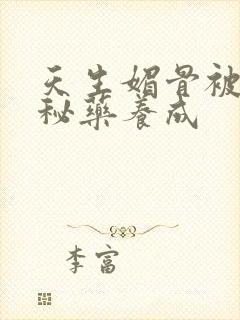 天生媚骨被
秘药养成
李富